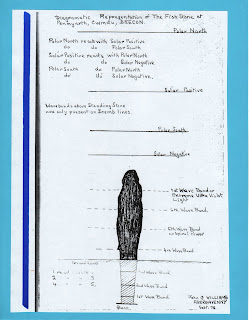 Diagramatic Representation of The Fish Stone at
Penmyarth, Cwmdu, BRECON.
Polar North
Polar North reacts with Solar Positive
do do Polar South
Solar Positive reacts with Polar North
Do do Solar Negative
Polar South do Polar North
do do Solar Negative.
Solar Positive
Wavebands above Standing Stone
are only present on Solar times.
Polar South
Solar Negative
7th Wave Band or
Ultra Violet
Light
6th Wave Band.
5th Wave Band
4th Wave Band
Ground Level
3rd Wave Band.
2nd Wave Band
1st Wave Band
Base.
WILLIAMS
ABERGAVENNY